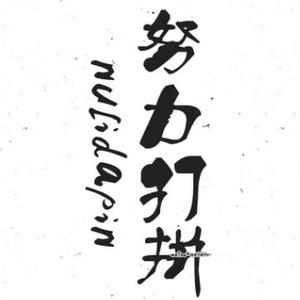 努力打拼
nulidapin